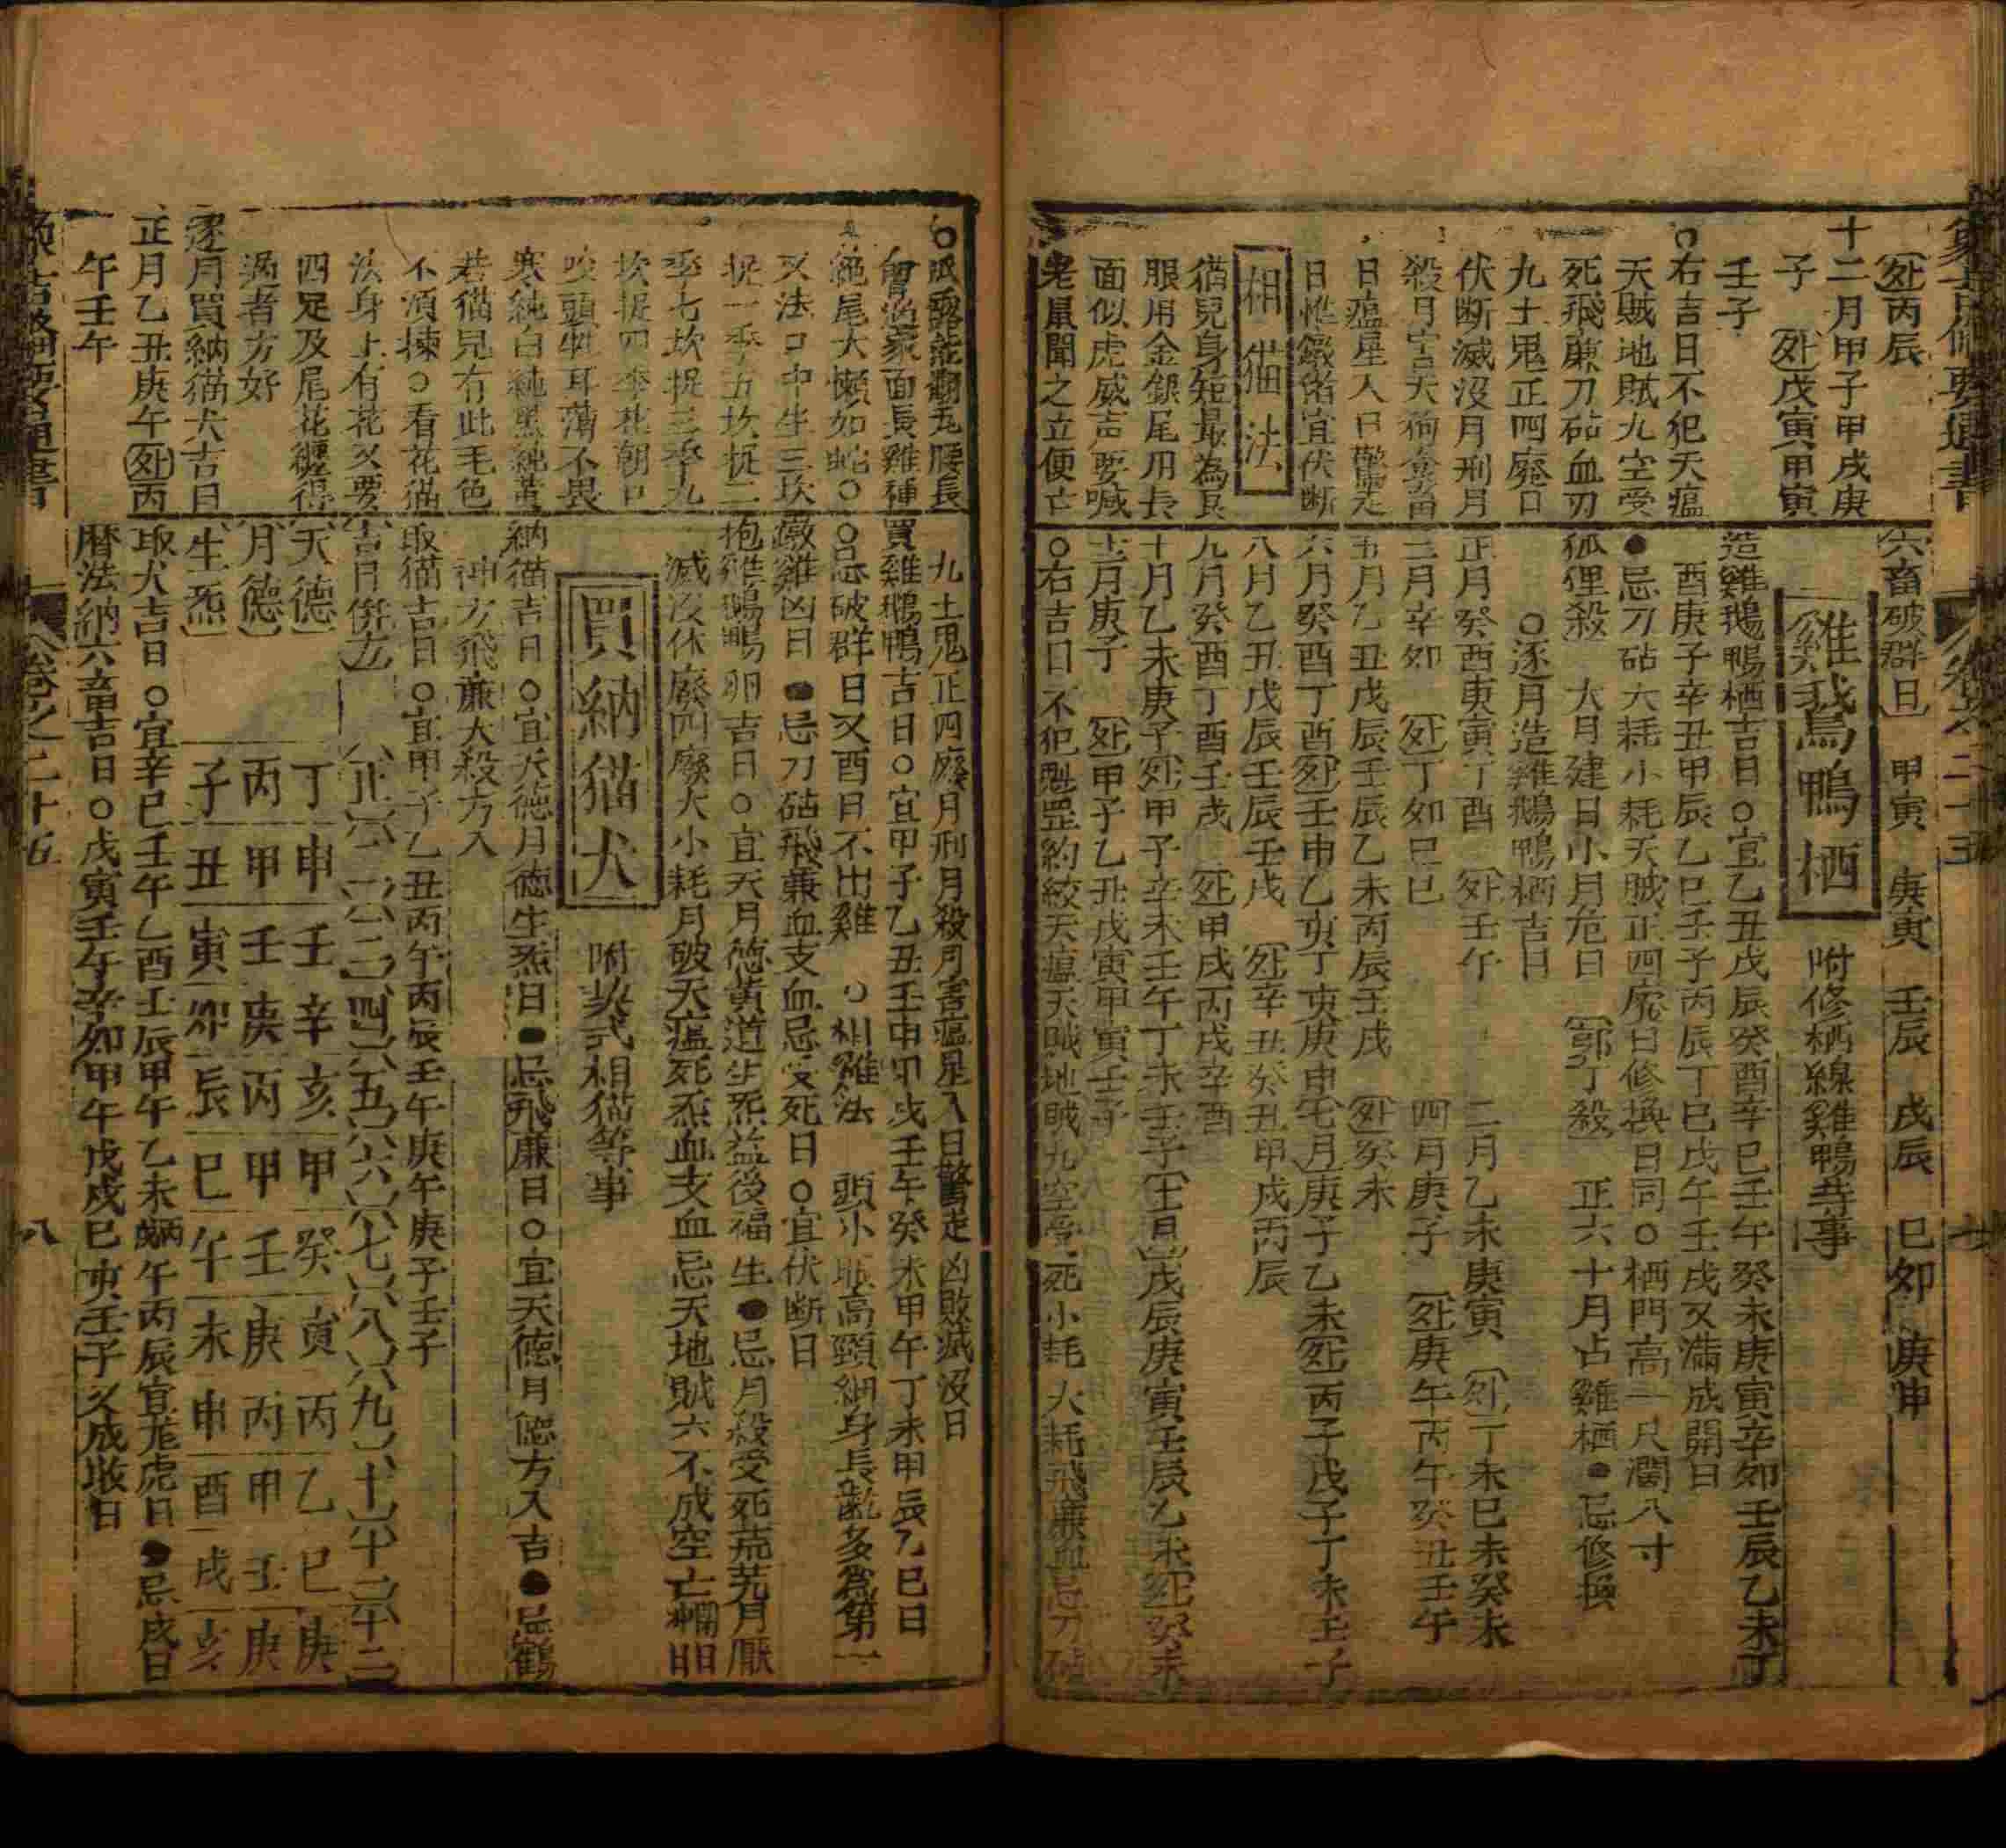 象吉備要通書
卷之二十五
七
処丙辰
十二月甲子甲戌庚
子 処戊寅甲寅
壬子
○右吉日不犯天瘟
天賊地賊九空受
死飛廉刀砧血刃
九土鬼正四廢日
伏断滅没月刑月
殺月害天狗食畜
日瘟星入日驚走
日惟鐓猪宜伏断
相猫法
猫兒身短最為良
眼用金銀尾用長
面似虎威声要喊
老鼠聞之立便亡
六畜破群日 甲寅 庚寅 壬辰 戊辰 己卯 庚申
雞鵞鴨栖 附修栖線雞鴨等事
造雞鵝鴨栖吉日○宜乙丑戊辰癸酉辛巳壬午癸未庚寅辛卯壬辰乙未丁
酉庚子辛丑甲辰乙巳壬子丙辰丁巳戊午壬戌又滿成開日
●忌刀砧大耗小耗天賊正四廢日修換日同○栖門高一尺濶八寸
狐狸殺 大月建日小月危日 郭丁殺 正六十月占雞栖●忌修換
○逐月造雞鵝鴨栖吉日
正月癸酉庚寅丁酉 処壬午 二月乙未庚寅 処丁未巳未癸未
三月辛卯 処丁卯巳巳 四月庚子 処庚午丙午癸丑壬午
五月乙丑戊辰壬辰乙未丙辰壬戌 処癸未
六月癸酉丁酉処壬申乙亥丁亥庚申七月庚子乙未処丙子戊子丁未壬子
八月乙丑戊辰壬辰壬戌 処辛丑癸丑甲戌丙辰
九月癸酉丁酉壬戌 処甲戌丙戌辛酉
十月乙未庚子処甲子辛未壬午丁未壬子十一月戊辰庚寅壬辰乙未処癸未
十二月庚子 処甲子乙丑戊寅甲寅壬子
○右吉日不犯魁罡約絞天瘟天賊地賊九空受死小耗大耗飛廉血忌刀砧
○爪露能翻瓦腰長
會過家面長雞種
絕尾大懶如蛇○
又法口中生三坎
捉一季五坎捉二
季七坎捉三季九
坎捉四季花朝口
咬頭牲耳薄不畏
寒純白純黑純黃
若猫兒有此毛色
不湏揀○看花猫
法身上有花又要
四足及尾花纏得
過者方好
逐月買納猫犬吉日
正月乙丑庚午処丙
午壬午
九土鬼正四廢月刑月殺月害瘟星入日驚走凶敗滅没日
買雞鵝鴨吉日○宜甲子乙丑壬申甲戌壬午癸未甲午丁未甲辰乙巳日
○忌破群日又酉日不出雞 ○相雞法 頭小眼高頸細身長齕多為第一
燉雞凶日●忌刀砧飛廉血支血忌受死日○宜伏断日
抱雞鵝鴨卵吉日○宜天月德黃道生炁益後福生●忌月殺受死荒芜月厭
滅没休廢四廢大小耗月破天瘟死炁血支血忌天地賊六不成空亡
買納猫犬 附契式相猫等事
納猫吉日○宜天德月德生炁日●忌飛廉日○宜天德月德方入吉●忌鶴
神方飛廉大殺方入
取猫吉日○宜甲子乙丑丙午丙辰壬午庚午庚子壬子
吉月例 正 二 三 四 五 六 七 八 九 十 十一 十二
天德 丁 申 壬 辛 亥 甲 癸 寅 丙 乙 巳 庚
月德 丙 甲 壬 庚 丙 甲 壬 庚 丙 甲 壬 庚
生炁 子 丑 寅 卯 辰 巳 午 未 申 酉 戌 亥
取犬吉日○宜辛巳壬午乙酉壬辰甲午乙未丙午丙辰宜尨虎日●忌戌日
曆法納六畜吉日○戊寅壬午辛卯甲午戊戌巳亥壬子又成收日
卷之二十五
八